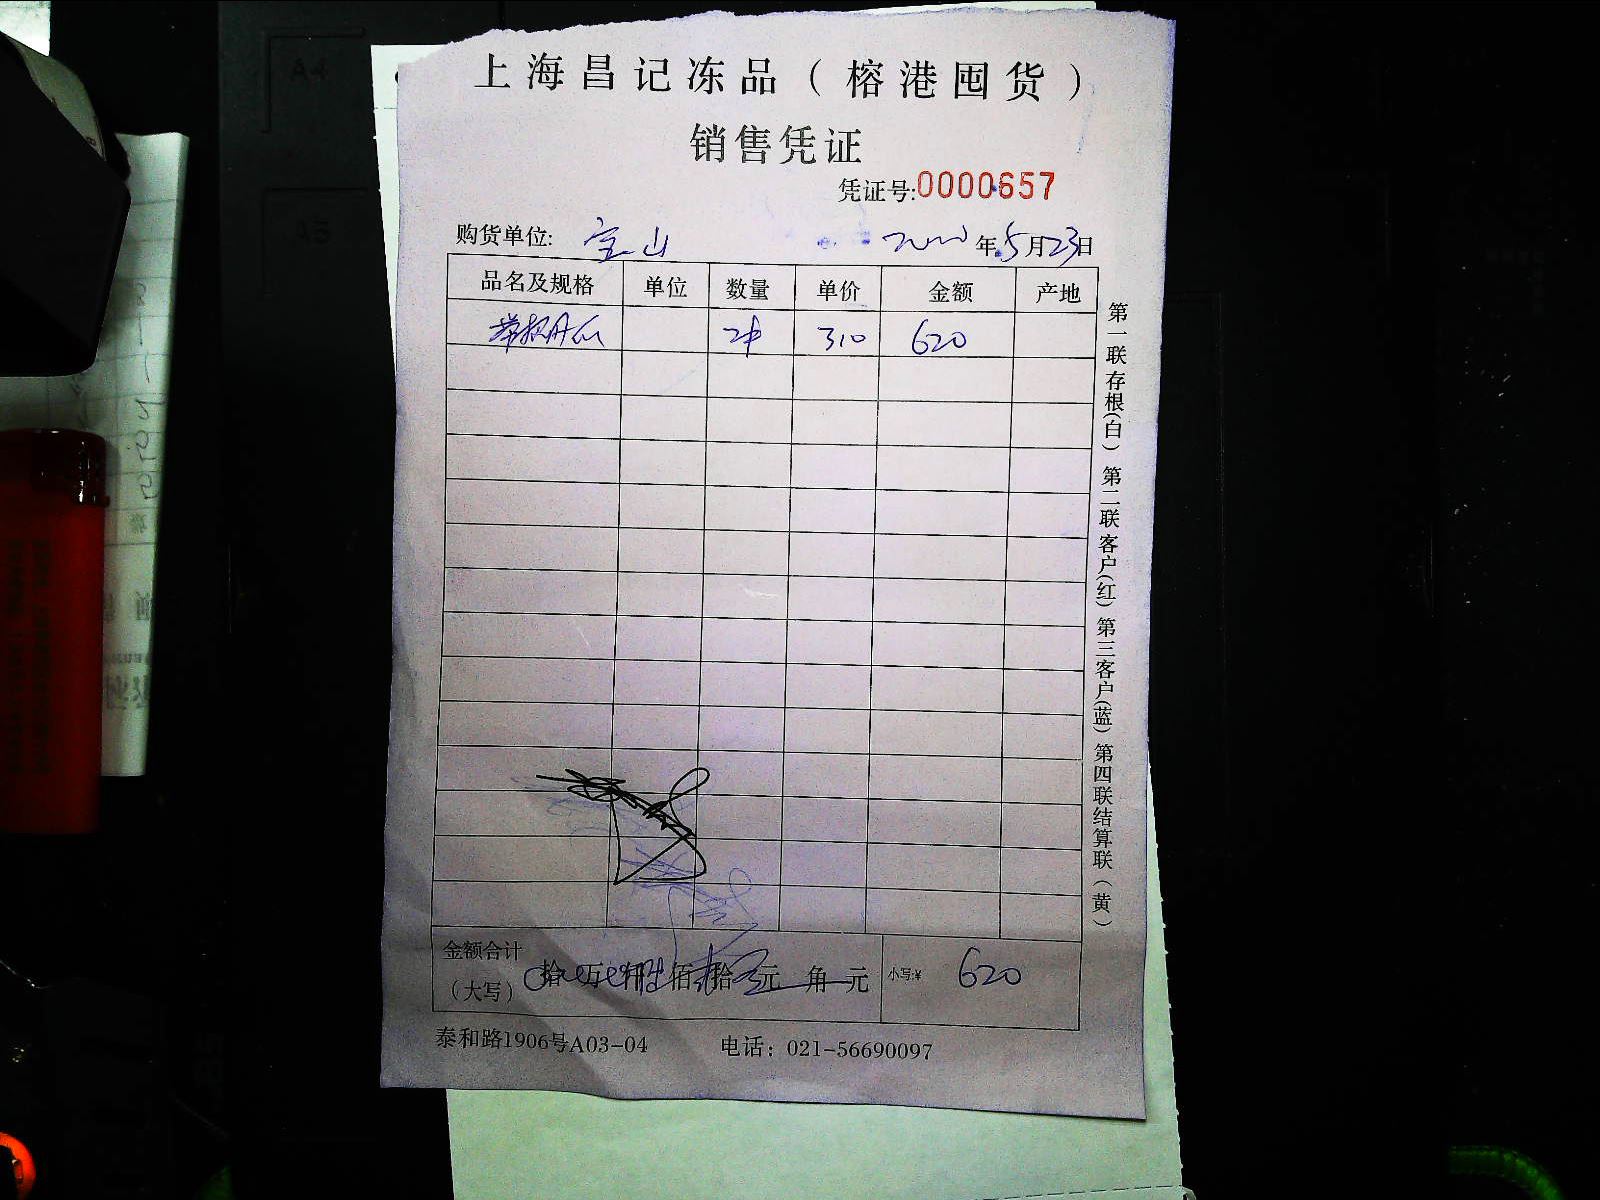 上海昌记冻品（榕港囤货）
销售凭证
凭证号:0000657
购货单位: 宝山 年5月23日
品名及规格 单位 数量 单价 金额 产地
2件 310 620
第一联存根(白) 第二联客户(红) 第三客户(蓝) 第四联结算联(黄)
金额合计
（大写） 拾 万 仟 佰 拾 元 角 元 小写:¥ 620
泰和路1906号A03-04 电话：021-56690097
A4
A5